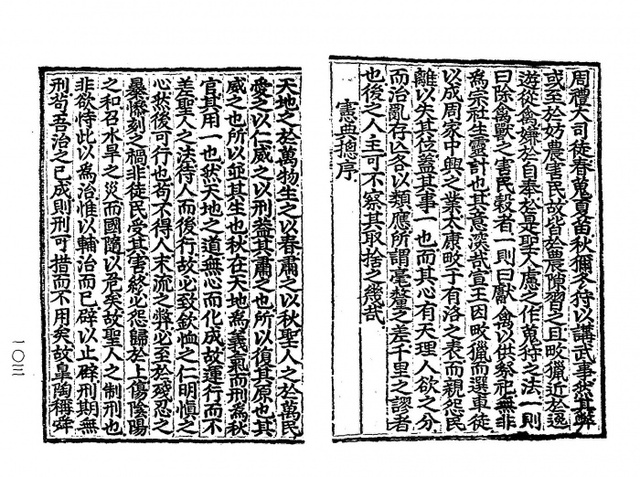 周禮大司徒春蒐夏苗秋獮冬狩以講武事然其弊
或至於妨農害民故皆於農隙習之且畋獵近於逸
遊從禽嫌於自奉於是聖人慮之作蒐狩之法一則
曰除禽獸之害民穀者一則曰獻禽以供祭祀無非
為宗社生靈計也其意深哉宣王因畋獵而選車徒
以成周家中興之業太康畋于有洛之表而親怨民
離以失其位蓋其事一也而其心有天理人欲之分
而治亂存亡各以類應所謂毫釐之差千里之謬者
也後之人主可不察其取捨之幾哉
憲典摠序
天地之於萬物生之以春肅之以秋聖人之於萬民
愛之以仁威之以刑蓋其肅之也所以復其原也其
威之也所以並其生也秋在天地為義氣而刑為秋
官其用一也然天地之道無心而化成故運行而不
差聖人之法待人而後行故必致欽恤之仁明愼之
心然後可行也苟不得人末流之弊必至於殘忍之
暴慘刻之禍非徒民受其害終必怨歸於上傷陰陽
之和召水旱之災而國隨以危矣故聖人之制刑也
非欲恃此以為治惟以輔治而已辟以止辟刑期無
刑苟吾治之已成則刑可措而不用矣故皐陶稱舜
一〇三